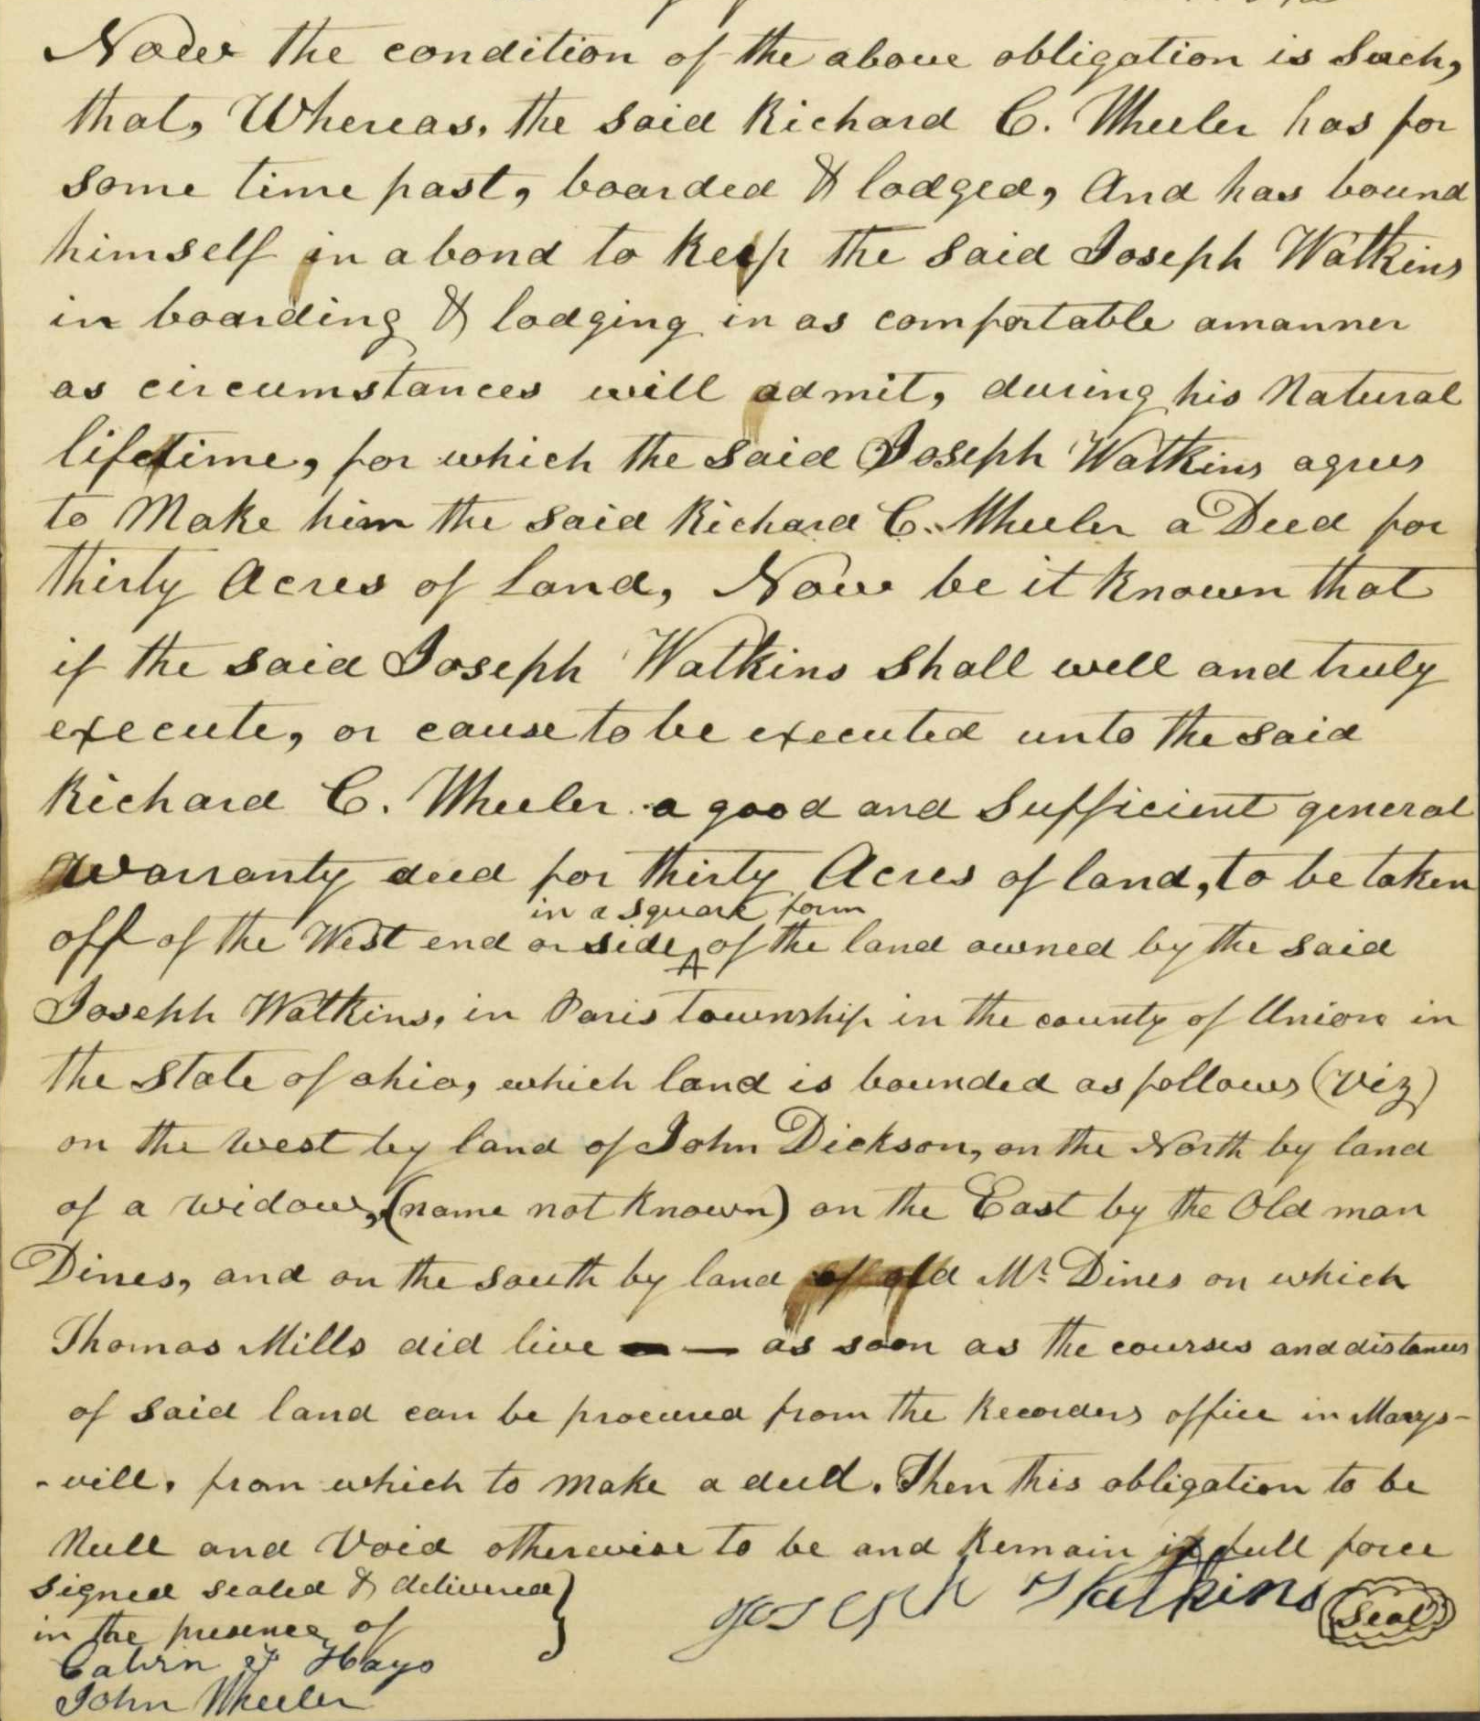 Now the condition of the above obligation is Such,
that, Whereas, the said Richard C. Wheeler has for
some time past, boarded & lodged, And has bound
himself in a bond to Keep the said Joseph Watkins
in boarding & lodging in as comfortable a manner
as circumstances will admit, during his Natural
lifetime, for which the said Joseph Watkins agrees
to Make him the said Richard C. Wheeler a Deed for
thirty Acres of Land, Now be it Known that
if the said Joseph Watkins Shall well and truly
execute, or cause to be executed unto the said
Richard C. Wheeler a good and Sufficient general
Warranty deed for thirty Acres of land, to be taken
in a square form
off of the West end or side of the land owned by the said
Joseph Watkins, in Paris township in the county of Union in
the State of ohio, which land is bounded as follows (viz)
on the west by land of John Dickson, on the North by land
of a widow, (name not Known) on the East by the Old man
Dines, and on the south by land of old Mr. Dines on which
Thomas Mills did live — as soon as the courses and distances
of said land can be procured from the Recorders office in Marys-
-vill, from which to make a deed. Then this obligation to be
Null and Void otherwise to be and Remain in full force
signed sealed & delivered
in the presence of
Joseph Watkins Seal
Calvin Hays
John Wheeler